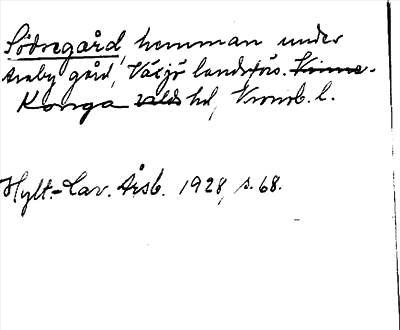 Södregård, hemman under
Araby gård, Växjö landsförs. Kinne-
Konga valds hd, Kronob. l.
Hylt.-Cav. Årsb. 1928, s. 68.